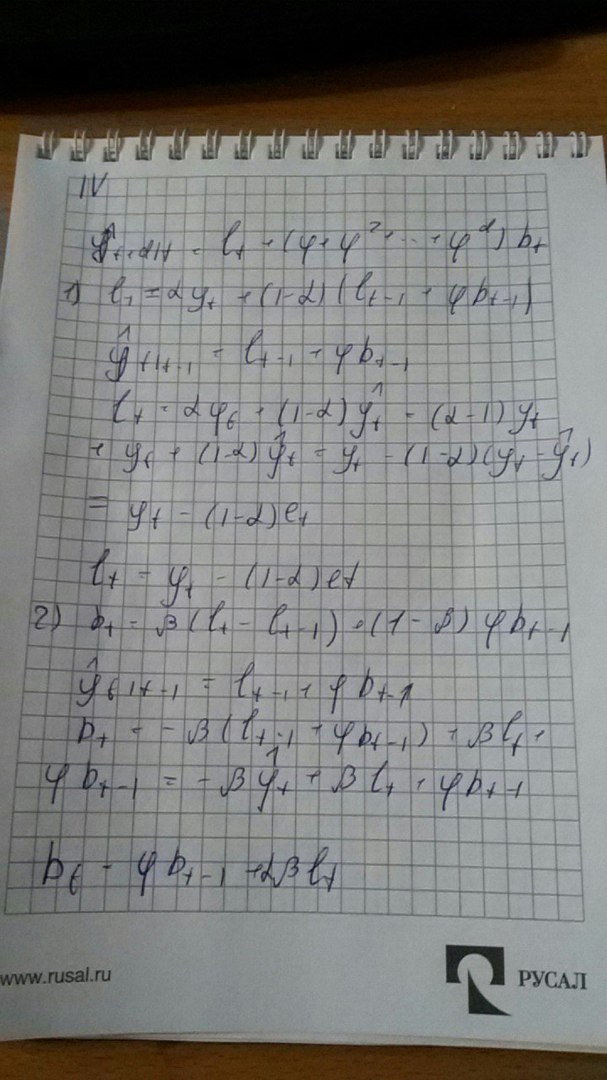 IV
ŷ_{t+d|t} = l_t + (φ + φ² + ... + φ^d) b_t
1) l_t = αy_t + (1-α)(l_{t-1} + φb_{t-1})
ŷ_{t|t-1} = l_{t-1} + φb_{t-1}
l_t = αy_t + (1-α)ŷ_t = (α-1)y_t
+ y_t + (1-α)ŷ_t = y_t - (1-α)(y_t - ŷ_t)
= y_t - (1-α)e_t
l_t = y_t - (1-α)e_t
2) b_t = β(l_t - l_{t-1}) + (1-β)φb_{t-1}
ŷ_{t|t-1} = l_{t-1} + φb_{t-1}
b_t = -β(l_{t-1} + φb_{t-1}) + βl_t +
φb_{t-1} = -βŷ_t + βl_t + φb_{t-1}
b_t = φb_{t-1} + αβe_t
www.rusal.ru
РУСАЛ